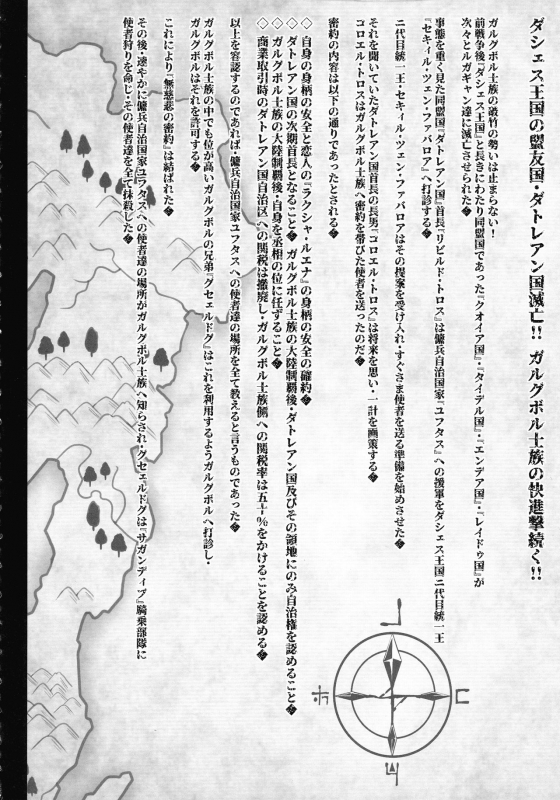 ダシェス王国の盟友国・ダトレアン国滅亡!! ガルグボル士族の快進撃続く!!
ガルグボル士族の破竹の勢いは止まらない！
前戦争後『ダシェス王国』と長きにわたり同盟国であった『クオイア国』・『タイデル国』・『エンデア国』・『レイドゥ国』が
次々とルガギャン達に滅亡させられた◆
事態を重く見た同盟国『ダトレアン国』首長『リビルド・トロス』は傭兵自治国家『ユフタス』への援軍をダシェス王国二代目統一王
『セキィル・ツェン・ファバロア』へ打診する◆
二代目統一王・セキィル・ツェン・ファバロアはその提案を受け入れ・すぐさま使者を送る準備を始めさせた◆
それを聞いていたダトレアン国首長の長男『コロエル・トロス』は将来を思い・一計を画策する◆
コロエル・トロスはガルグボル士族へ密約を帯びた使者を送ったのだ◆
密約の内容は以下の通りであったとされる◆
◇ 自身の身柄の安全と恋人の『ラクシャ・ルエナ』の身柄の安全の確約◆
◇ ダトレアン国の次期首長となること◆ ガルグボル士族の大陸制覇後・ダトレアン国及びその領地にのみ自治権を認めること◆
◇ ガルグボル士族の大陸制覇後・自身を丞相の位に任ずること◆
◇ 商業取引時のダトレアン国自治区への関税は撤廃し・ガルグボル士族側への関税率は五十%をかけることを認める◆
以上を容認するのであれば・傭兵自治国家ユフタスへの使者達の場所を全て教えると言うものであった◆
ガルグボル士族の中でも位が高いガルグボルの兄弟『グセェルドグ』はこれを利用するようガルグボルへ打診し・
ガルグボルはそれを許可する◆
これにより『無慈悲の密約』は結ばれた◆
その後・速やかに傭兵自治国家ユフタスへの使者達の場所がガルグボル士族へ知らされ・グセェルドグは『サガンディブ』騎乗部隊に
使者狩りを命じ・その使者達を全て抹殺した◆